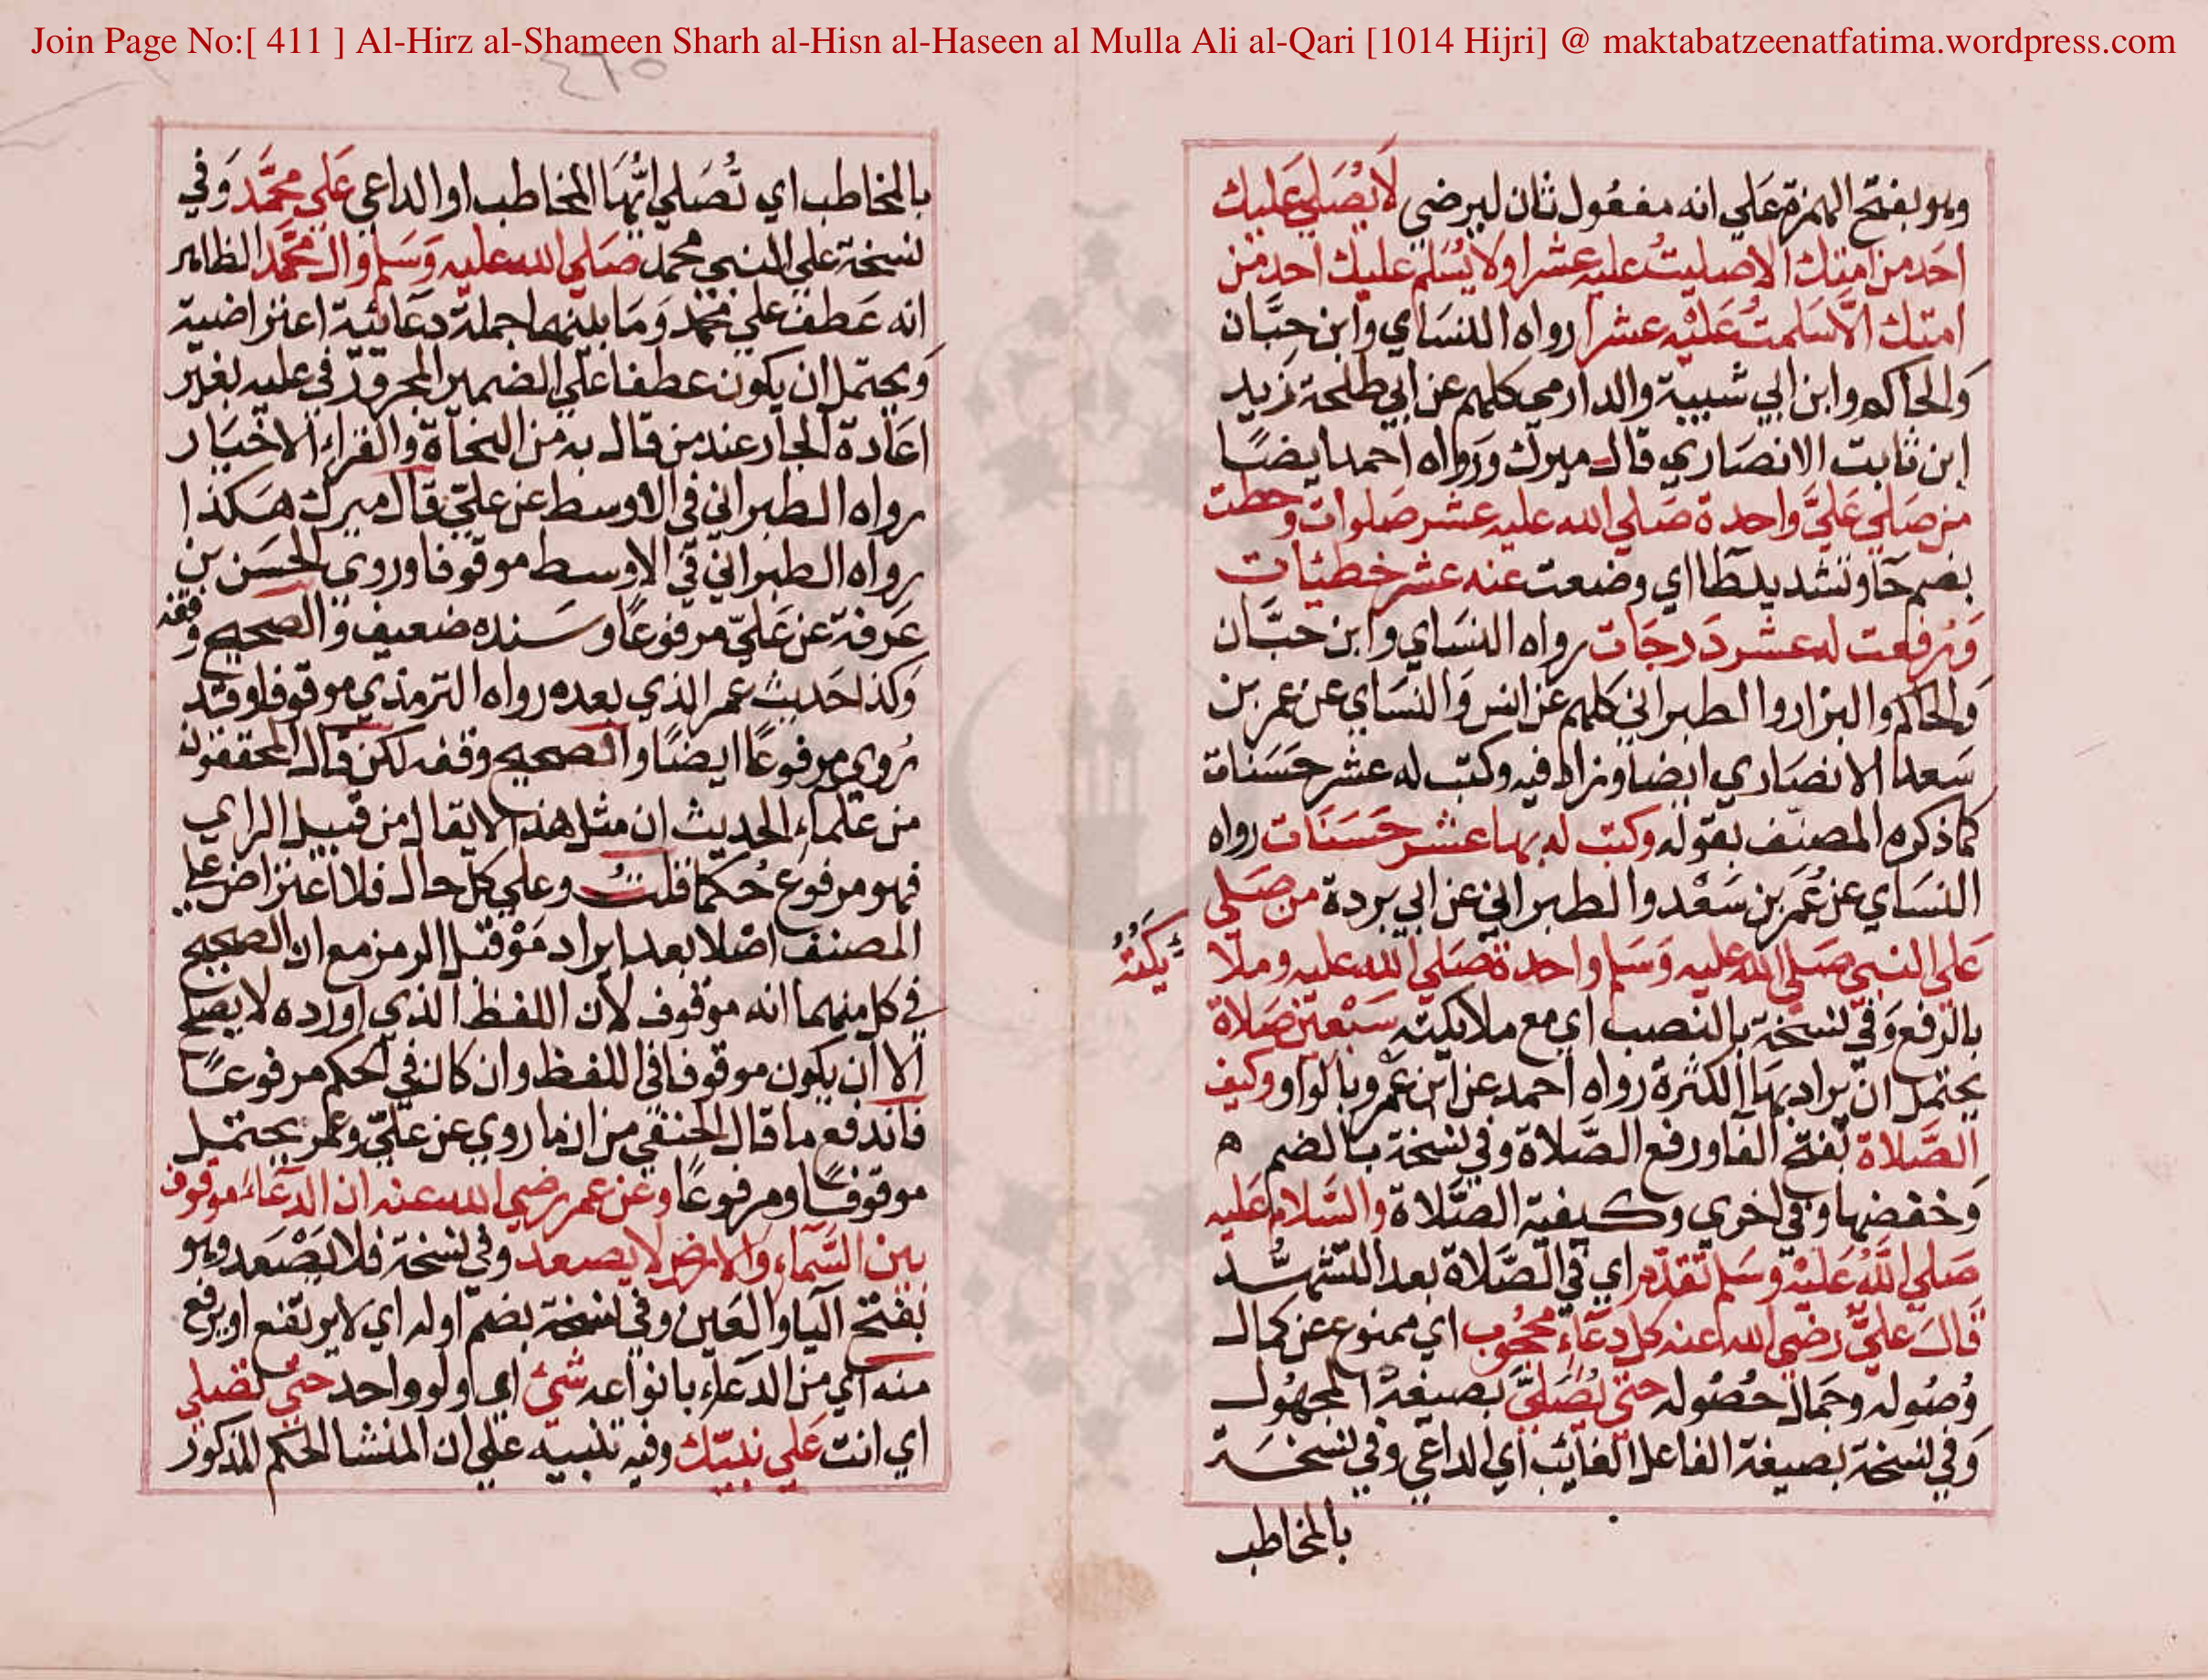 Join Page No:[ 411 ] Al-Hirz al-Shameen Sharh al-Hisn al-Haseen al Mulla Ali al-Qari [1014 Hijri] @ maktabatzeenatfatima.wordpress.com
وهو بفتح الهمزة عَلي انه مفعُول ثان ليرضي لَا يُصَلي عَليك
احَد من امتك الا صليتُ عليه عشرا ولا يُسَلم عليك احد من
امتك الَّا سَلمتُ عَليْه عشرا رواه النسَاي وابن حِبَّان
وَالحاكم وابن ابي شيبة والدارمي كلهم عن ابي طلحة زيد
ابن ثابت الانصَاري قال ميرك وَرَواه احمد ايضًا
من صَلي عَليَّ واحدة صَلي الله عليه عشر صَلوات وحطت
بضم حَا وتشديد طَا اي وضعت عنه عشر خطيئات
وَرفعت له عشر دَرجَات رواه النسَاي وابن حبَّان
وَالحاكم والبزار والطبراني كلهم عن انس وَالنسَاي عن عمر بن
سَعد الانصَاري ايضا وزاد فيه وكتب له عشر حَسَنات
كما ذكره المصنّف بقوله وكتب له بها عشر حَسَنَات رواه
النسَاي عن عُمَر بن سَعْد والطبراني عن ابي بَردة من صَلي
عَلي النبي صَلي الله عليه وَسَلم واحدة صَلي الله عليه وملا
ئِكَتُهُ
بالرفع وَفي نسخة بالنصب اي مع ملائكته سَبْعين صَلاة
يحتمل ان يراد بهَا الكثرة رواه احمد عن ابن عَمْرو بالواو وكيف
الصَّلاة بفتح الفا ورفع الصَّلاة وفي نسخة بالضم ه
وَخفضها وفي اخري وكيفية الصَّلاة والسَّلام عَليه
صَلي اللَّهُ عَليْه وسَلم تقدَّم اي في الصَّلاة بعد التشهُّد
قَالَ عَليٌّ رضي الله عنه كل دعَاءٍ محجُوب اي ممنوع عن كمال
وُصُوله وجَمال حُصُوله حتي يُصَلَّيَ بصيغة المجهُول
وَفي نسخة بصيغة الفاعل الغائب اي الداعي وفي نسخَة
بالمخاطب
بالمخاطب اي تُصَلي ايُّهَا المخاطب او الداعي عَلي محمَّد وَفي
نسخة علي النبي محمد صَلي الله عليه وَسَلم وال محمَّد الظاهر
انه عَطف علي محمد وَمَا بينهما جملة دعَائية اعتراضية
وَيحتمل ان يكون عطفا علي الضمير المجرور في عليه بغير
اعَادة الجار عند من قال به من النحَاة والقراء الاخيَار
رواه الطبراني في الاوسط عن عليّ قال ميرك هَكذا
رواه الطبراني في الاوسط موقوفا وروي الحسَن بن
عَرفة عن عَليّ مرفوعًا وسَنده ضعيف والصحيح وقفه
وَكذا حَديث عمر الذي بعده رواه الترمذي موقوفا وقد
رُوي مرفوعًا ايضًا والصحيح وقفه لكن قال المحققون
من علماء الحديث ان مثل هذا لا يقال من قبيل الراي
فهو مرفوع حُكما قلتُ وعلي كل حال فلا اعتراض علي
المصنف اصْلا بعد ايراد مَوْ قبل الرمز مع ان الصحيح
في كل منهما انه موقوف لان اللفظ الذي اورده لا يصلح
الا ان يكون موقوفا في اللفظ وان كان في الحكم مرفوعًا
فاندفع ما قال الحنفي من ان ما روي عن عليّ وعمر يحتمل
موقوفًا ومرفوعًا وعن عمر رضي الله عنه ان الدعَاء موقوف
بين السَّماء والارض لا يصعد وفي نسخة فلا يَصْعَد وهو
بفتح اليا والعَين وفي نسخة بضم اوله اي لا يرتفع او يرفع
منه اي من الدعَاء بانواعه شيْ اي ولو واحد حتي تصَلي
اي انت عَلي نبيّك وفيه تنبيه علي ان المنشا الحكم المذكور